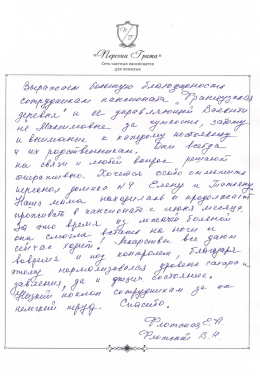 «Персона Грата»
Сеть частных пансионатов
для пожилых
Выражаем большую благодарность
сотрудникам пансионата "Французская
деревня" и её управляющей
не Максимовне за чуткость, заботу
и внимание к каждому постояльцу
и их родственникам. Они всегда
на связи и любой вопрос решают
оперативно. Хочется особо отметить
персонал домика №4 Елену и Татьяну.
Наша мама находилась и продолжает
проживать в пансионате с июня месяца.
За это время из лежачей больной
она смогла встать на ноги и
сейчас ходит! Лекарства все дают
вовремя и под контролем, благодаря
этому нормализовался уровень сахара и
давления, да и общее состояние.
Низкий поклон сотрудникам за их
нелегкий труд. Спасибо.
Е.Н.
В.Н.